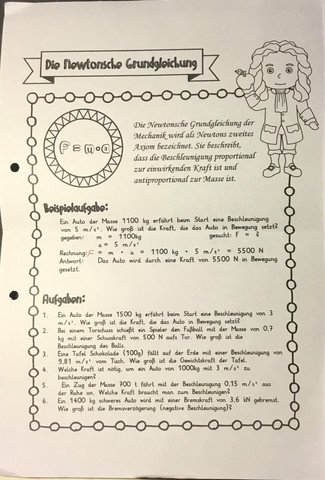 Die Newtonsche Grundgleichung
F = m · a
Die Newtonsche Grundgleichung der
Mechanik wird als Newtons zweites
Axiom bezeichnet. Sie beschreibt,
dass die Beschleunigung proportional
zur einwirkenden Kraft ist und
antiproportional zur Masse ist.
Beispielaufgabe:
Ein Auto der Masse 1100 kg erfährt beim Start eine Beschleunigung
von 5 m/s². Wie groß ist die Kraft, die das Auto in Bewegung setzt?
gegeben: m = 1100kg gesucht: F = ?
a = 5 m/s²
Rechnung: F = m · a = 1100 kg · 5 m/s² = 5500 N
Antwort: Das Auto wird durch eine Kraft von 5500N in Bewegung
gesetzt.
Aufgaben:
1. Ein Auto der Masse 1500 kg erfährt beim Start eine Beschleunigung von 3
m/s². Wie groß ist die Kraft, die das Auto in Bewegung setzt?
2. Bei einem Torschuss schießt ein Spieler den Fußball mit der Masse von 0,7
kg mit einer Schusskraft von 500 N aufs Tor. Wie groß ist die
Beschleunigung des Balls.
3. Eine Tafel Schokolade (100g) fällt auf der Erde mit einer Beschleunigung von
9,81 m/s² vom Tisch. Wie groß ist die Gewichtskraft der Tafel.
4. Welche Kraft ist nötig, um ein Auto von 1000kg mit 3 m/s² zu
beschleunigen?
5. Ein Zug der Masse 700 t fährt mit der Beschleunigung 0,15 m/s² aus
der Ruhe an. Welche Kraft braucht man zum Beschleunigen?
6. Ein 1400 kg schweres Auto wird mit einer Bremskraft von 3,6 kN gebremst.
Wie groß ist die Bremsverzögerung (negative Beschleunigung)?